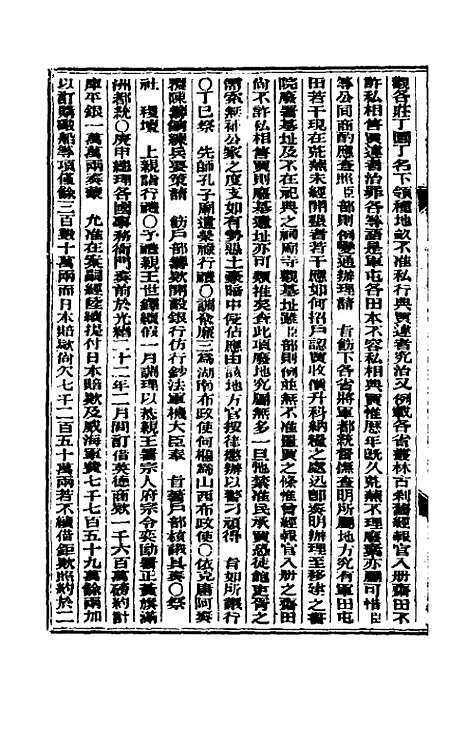 觀各莊丁園丁名下領種地畝不准私行典賣違者究治又例載各省叢林古剎舊經報官入册齋田不
許私相售賣違者治罪各等語是軍屯各田本不容私相典賣惟歷年既久荒蕪不理廢棄亦屬可惜臣
等公同商酌應查照臣部則例變通辦理請 旨飭下各省將軍都統督撫查明所屬地方究有軍田屯
田若干現在荒蕪未經開墾者若干應如何招戶認買收價升科納糧之處迅卽奏明辦理至移建之書
院廢署基址及不在祀典之祠廟寺觀基址雖臣部則例並無不准置買之條惟曾經報官入册之齋田
尚不許私相售賣則廢基遺址亦可類推矣查此項廢地究屬無多一旦弛禁准民承買恐徒飽吏胥之
需索無裨公家之度支如有劣紳土豪暗中侵佔應由該地方官按律懲辦以警刁頑得 旨如所議行
○丁巳祭 先師孔子廟遣 行禮○調 廉三爲湖南布政使何樞爲山西布政使○依克唐阿奏
 陳 練兵要策請 飭戶部籌款開設銀行仿行鈔法軍機大臣奉 旨著戶部核議具奏○祭
社 稷壇 上親詣行禮○予禮親王世鐸續假一月調理以恭親王署宗人府宗令奕劻署正黃旗滿
洲都統○庚申總理各國事務衙門奏前於光緒二十二年二月間訂借英德商款一千六百萬磅約計
庫平銀一萬萬兩奏蒙 允准在案嗣經陸續提付日本賠款及威海軍費七千七百五十九萬餘兩加
以訂購砲船等項僅餘三百數十萬兩而日本賠款尚欠七千二百五十萬兩若不續借鉅款照約於二